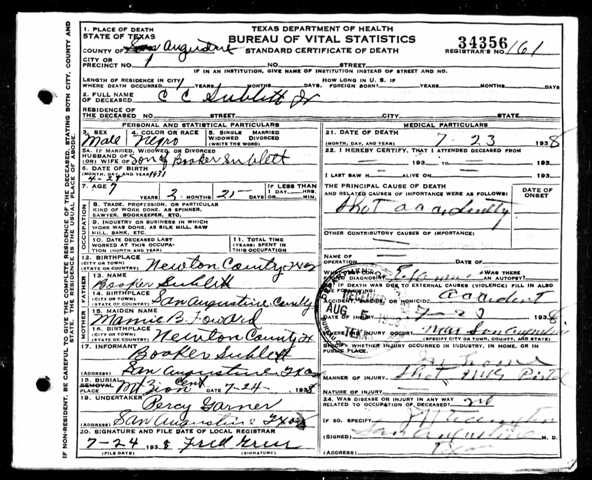 1. PLACE OF DEATH
STATE OF TEXAS
COUNTY OF San Augustine
CITY OR PRECINCT NO. 1
TEXAS DEPARTMENT OF HEALTH
BUREAU OF VITAL STATISTICS
STANDARD CERTIFICATE OF DEATH
34356
REGISTRAR'S NO. 161
NO. STREET
IF IN AN INSTITUTION, GIVE NAME OF INSTITUTION INSTEAD OF STREET AND NO.
LENGTH OF RESIDENCE IN CITY
WHERE DEATH OCCURRED YEARS MONTHS DAYS
HOW LONG IN U. S. IF FOREIGN BORN? YEARS MONTHS DAYS
2. FULL NAME OF DECEASED C C Sublett Jr
RESIDENCE OF THE DECEASED NO. STREET CITY STATE
PERSONAL AND STATISTICAL PARTICULARS
3. SEX Male
4. COLOR OR RACE Negro
5. SINGLE MARRIED WIDOWED DIVORCED (WRITE THE WORD)
5A. IF MARRIED, WIDOWED, OR DIVORCED
HUSBAND OF (OR) WIFE OF Son of Booker Sublett
6. DATE OF BIRTH (MONTH, DAY, AND YEAR) 1931
7. AGE 7 YEARS 2 MONTHS 25 DAYS
IF LESS THAN 1 DAY, HRS. MIN.
OCCUPATION
8. TRADE, PROFESSION, OR PARTICULAR KIND OF WORK DONE, AS SPINNER, SAWYER, BOOKKEEPER, ETC.
9. INDUSTRY OR BUSINESS IN WHICH WORK WAS DONE, AS SILK MILL, SAW MILL, BANK, ETC.
10. DATE DECEASED LAST WORKED AT THIS OCCUPATION (MONTH AND YEAR)
11. TOTAL TIME (YEARS) SPENT IN THIS OCCUPATION
12. BIRTHPLACE (CITY OR TOWN) (STATE OR COUNTRY) Newton County Texas
FATHER
13. NAME Booker Sublett
14. BIRTHPLACE (CITY OR TOWN) (STATE OF COUNTRY) San Augustine County
MOTHER
15. MAIDEN NAME Mannie B. Foward
16. BIRTHPLACE (CITY OR TOWN) (STATE OR COUNTRY) Newton County Tx
17. INFORMANT Booker Sublett
San Augustine Texas
18. BURIAL REMOVAL Mt Zion Cem 7-24- 1938
19. UNDERTAKER Percy Garner
San Augustine Texas
20. SIGNATURE AND FILE DATE OF LOCAL REGISTRAR
7-24 1938 Fred Greer
(FILE DATE) (SIGNATURE)
MEDICAL PARTICULARS
21. DATE OF DEATH (MONTH, DAY, AND YEAR) 7-23 1938
22. I HEREBY CERTIFY, THAT I ATTENDED DECEASED FROM
193 TO 193
I LAST SAW H ALIVE ON 193
THE PRINCIPAL CAUSE OF DEATH AND RELATED CAUSES OF IMPORTANCE WERE AS FOLLOWS:
DATE OF ONSET
Shot accidently
OTHER CONTRIBUTORY CAUSES OF IMPORTANCE:
NAME OF OPERATION
WAS THERE AN AUTOPSY?
23. IF DEATH WAS DUE TO EXTERNAL CAUSES (VIOLENCE) FILL IN ALSO THE FOLLOWING:
ACCIDENT, SUICIDE, OR HOMICIDE? accident
7-23 1938
INJURY OCCUR? near San Augustine
(SPECIFY CITY OR TOWN, COUNTY, AND STATE)
SPECIFY WHETHER INJURY OCCURRED IN INDUSTRY, IN HOME, OR IN PUBLIC PLACE.
MANNER OF INJURY Shot with Pistol
NATURE OF INJURY
24. WAS DISEASE OR INJURY IN ANY WAY RELATED TO OCCUPATION OF DECEASED? no
IF SO, SPECIFY
(SIGNED) M. D.
San Augustine
Texas
AUG